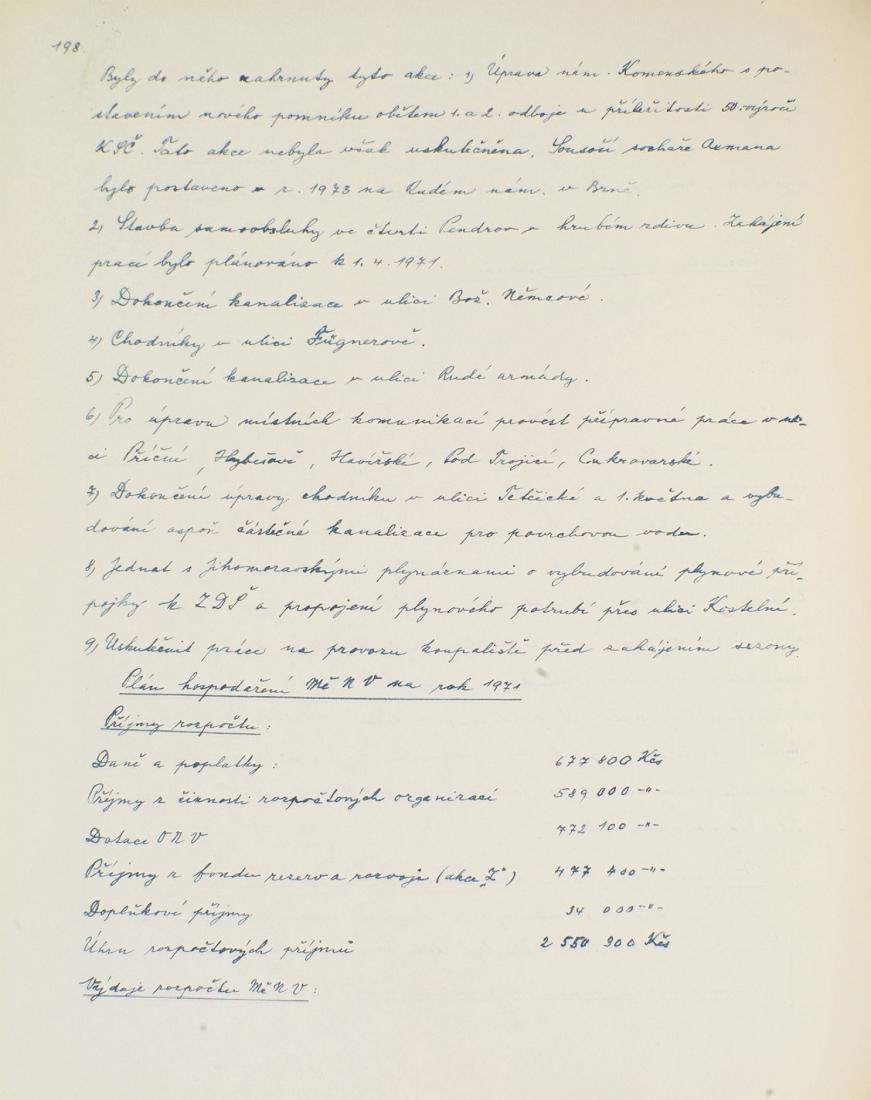 198
Byly do něho zahrnuty tyto akce: 1) Úprava nám. Komenského s po-
stavením nového pomníku obětem 1. a 2. odboje u příležitosti 50. výročí
KSČ. Tato akce nebyla však uskutečněna. Sousoší sochaře Axmana
bylo postaveno v r. 1973 na Rudém nám. v Brně.
2) Stavba samoobsluhy ve čtvrti Pendrov v hrubém zdivu. Zahájení
prací bylo plánováno k 1. 4. 1971.
3) Dokončení kanalizace v ulici Bož. Němcové.
4) Chodníky v ulici Fügnerově.
5) Dokončení kanalizace v ulici Rudé armády.
6) Pro úpravu místních komunikací provést přípravné práce v uli-
ci Příční, Hybešově, Havířské, Pod Trojicí, Cukrovarské.
7) Dokončení úpravy chodníku v ulici Tetčické a 1. května a vybu-
dování aspoň částečné kanalizace pro povrchovou vodu.
8) Jednat s Jihomoravskými plynárnami o vybudování plynové pří-
pojky k ZDŠ a propojení plynového potrubí přes ulici Kostelní.
9) Uskutečnit práce na provozu koupaliště před zahájením sezony.
Plán hospodaření MěNV na rok 1971
Příjmy rozpočtu:
Daně a poplatky: 677 800 Kčs
Příjmy z činnosti rozpočtových organizací 589 000 -"-
Dotace ONV 772 100 -"-
Příjmy z fondu rezerv a rozvoje (akce „Z") 477 400 -"-
Doplňkové příjmy 34 000 -"-
Úhrn rozpočtových příjmů 2 550 300 Kčs
Výdaje rozpočtu MěNV: